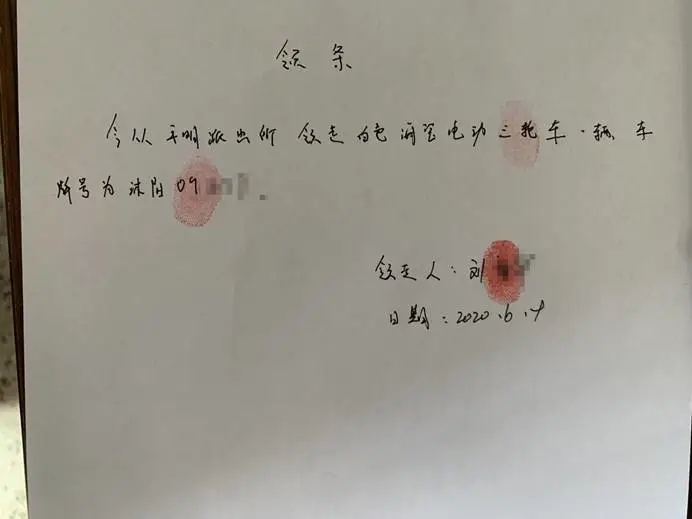 领条
今从开明派出所 领走白色消管电动三轮车一辆 车
牌号为沭阳09
领走人:刘
日期:2020.6.4